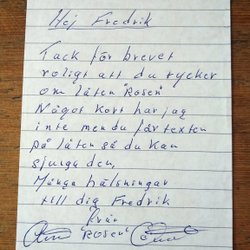 Hej Fredrik
Tack för brevet
roligt att du tycker
om låten "Rosen"
Något kort har jag
inte men du får texten
på låten så du kan
sjunga den.
Många hälsningar
till dig Fredrik
från
"Rosen"